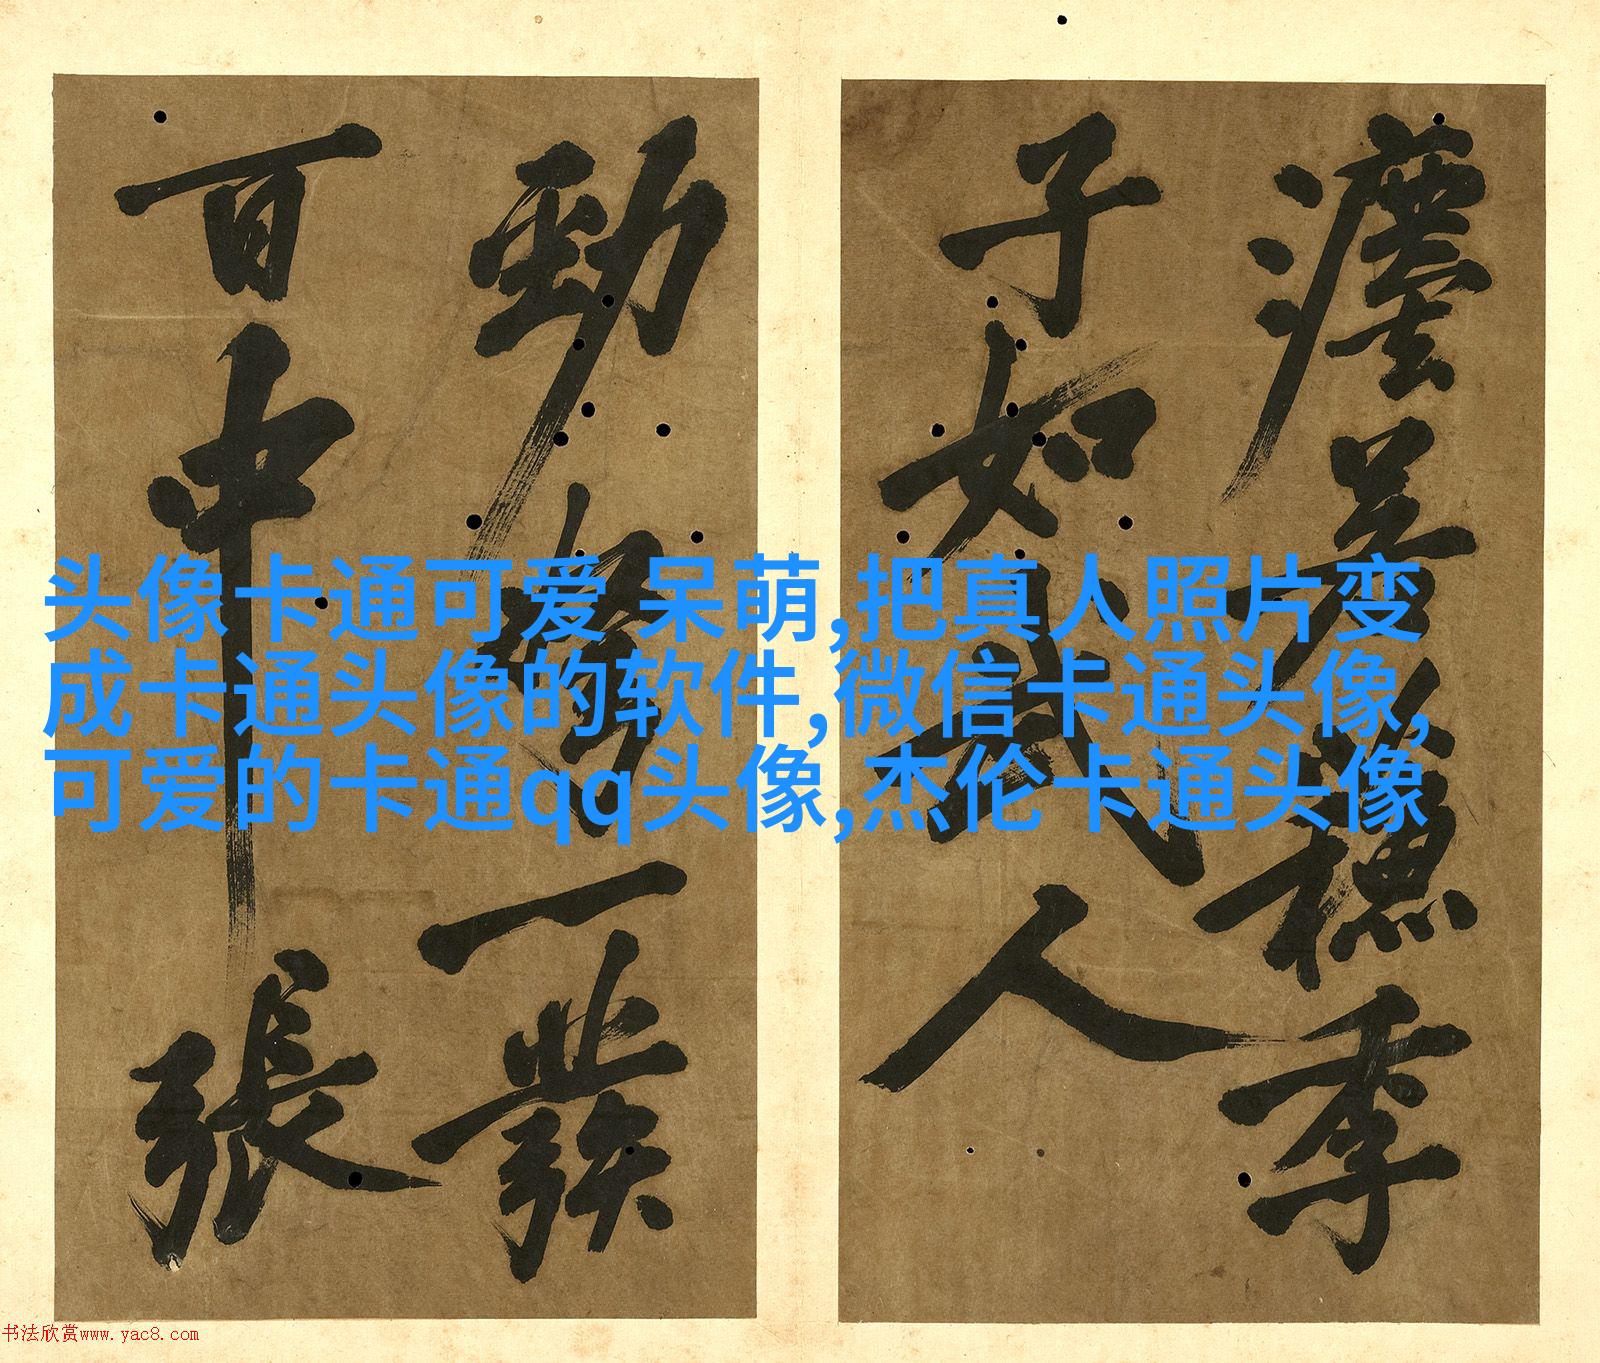 季
子如武人
勁弩一發
百中張
头像卡通可爱 呆萌,把真人照片变
成卡通头像的软件,微信卡通头像,
可爱的卡通qq头像,杰伦卡通头像
书法欣赏www.yac8.com